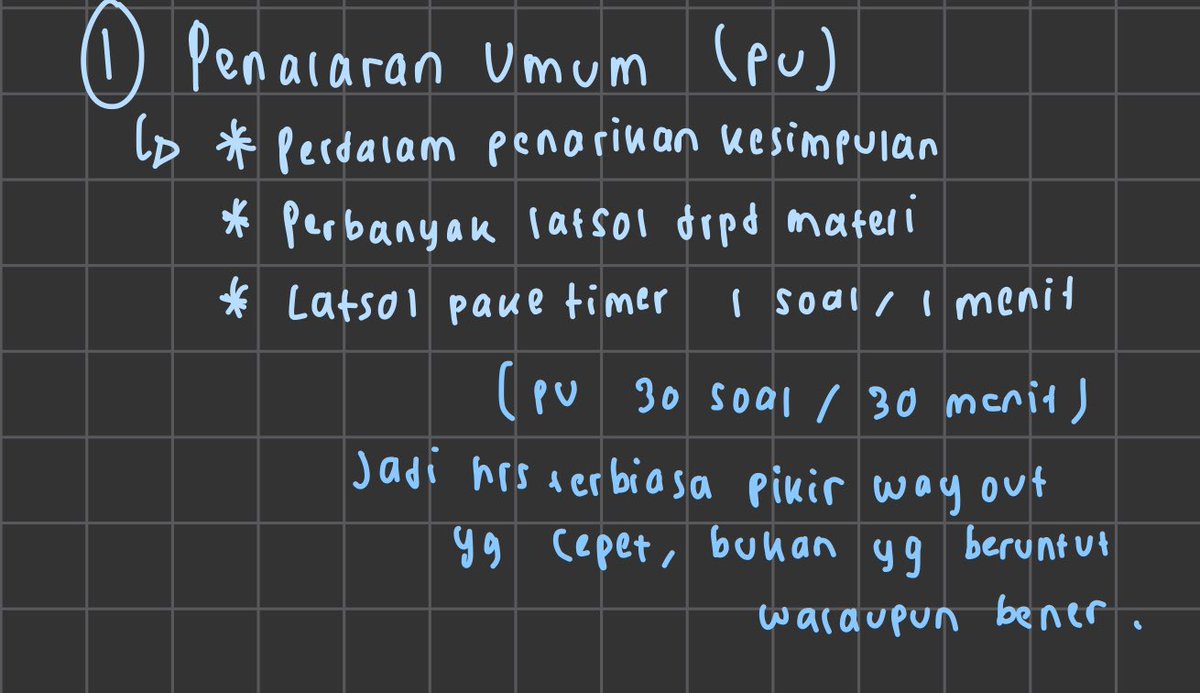 ① Penalaran Umum (PU)
↳ * Perdalam penarikan kesimpulan
* Perbanyak latsol drpd materi
* Latsol pake timer 1 soal / 1 menit
(PU 30 soal / 30 menit)
Jadi hrs terbiasa pikir way out
yg cepet, bukan yg beruntut
walaupun bener.